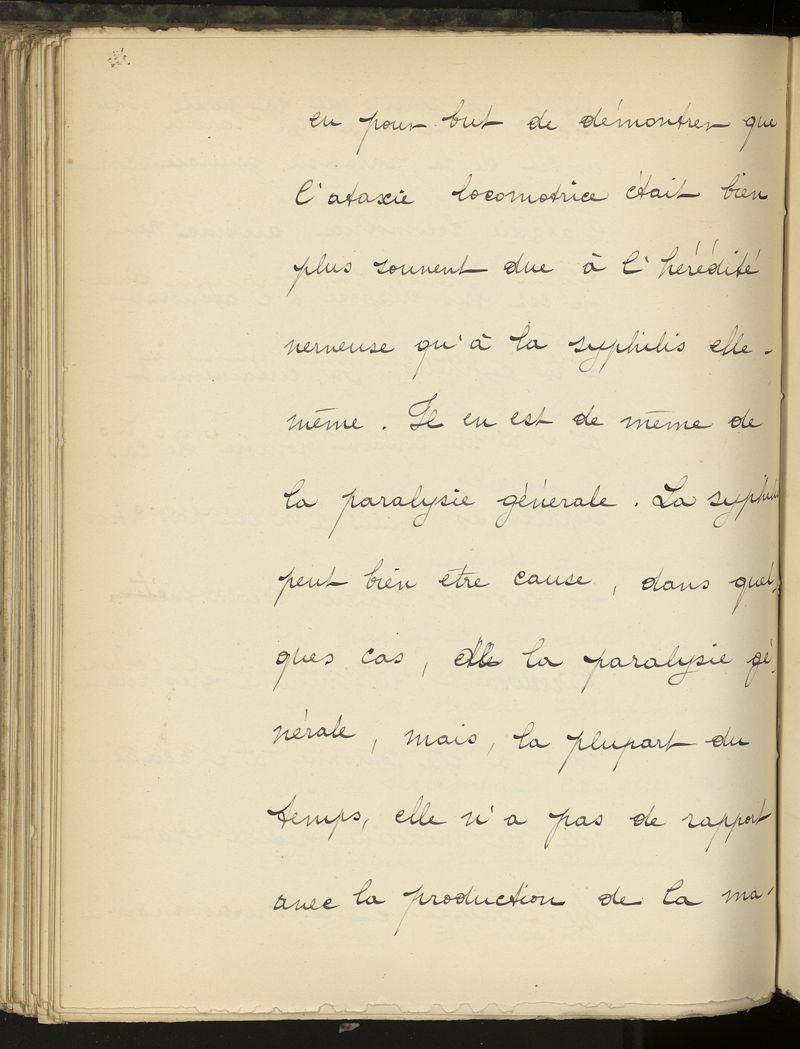 eu pour but de démontrer que
l'ataxie locomotrice était bien
plus souvent due à l'hérédité
nerveuse qu'à la syphilis elle-
même. Il en est de même de
la paralysie générale. La syphilis
peut bien etre cause, dans quel-
ques cas, de la paralysie gé-
nérale, mais, la plupart du
temps, elle n'a pas de rapport
avec la production de la ma-